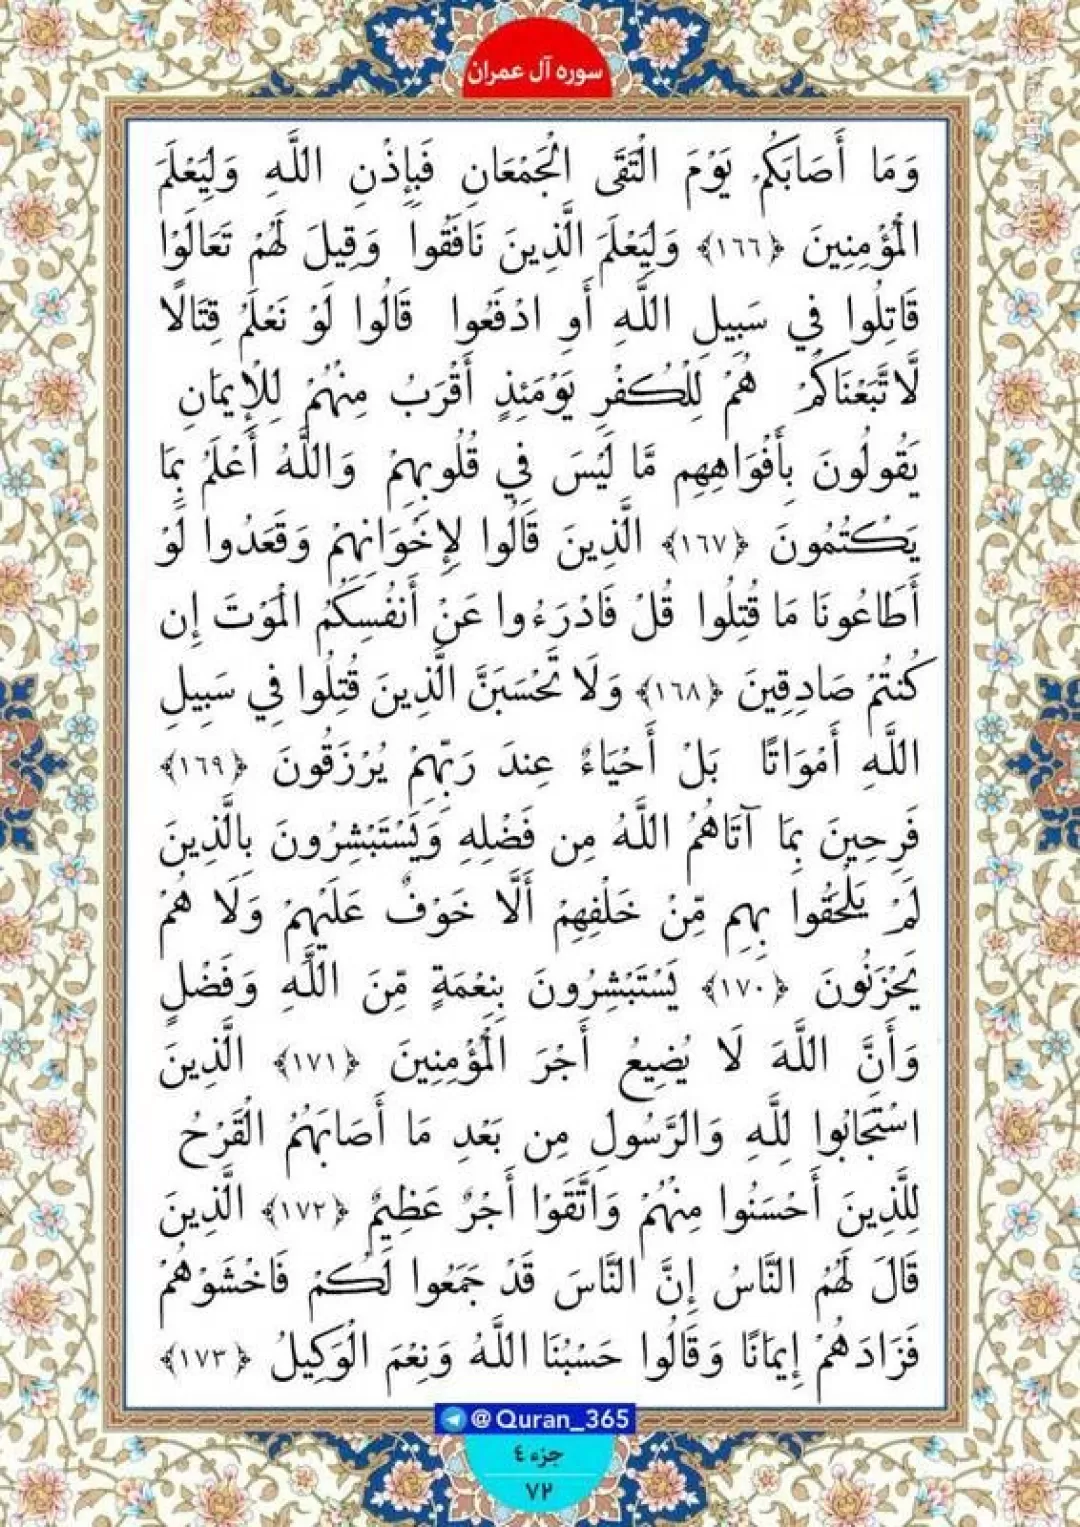 سوره آل عمران
وَمَا أَصَابَكُمْ يَوْمَ الْتَقَى الْجَمْعَانِ فَبِإِذْنِ اللَّهِ وَلِيَعْلَمَ
الْمُؤْمِنِينَ ﴿١٦٦﴾ وَلِيَعْلَمَ الَّذِينَ نَافَقُوا وَقِيلَ لَهُمْ تَعَالَوْا
قَاتِلُوا فِي سَبِيلِ اللَّهِ أَوِ ادْفَعُوا قَالُوا لَوْ نَعْلَمُ قِتَالًا
لَّاتَّبَعْنَاكُمْ هُمْ لِلْكُفْرِ يَوْمَئِذٍ أَقْرَبُ مِنْهُمْ لِلْإِيمَانِ
يَقُولُونَ بِأَفْوَاهِهِم مَّا لَيْسَ فِي قُلُوبِهِمْ وَاللَّهُ أَعْلَمُ بِمَا
يَكْتُمُونَ ﴿١٦٧﴾ الَّذِينَ قَالُوا لِإِخْوَانِهِمْ وَقَعَدُوا لَوْ
أَطَاعُونَا مَا قُتِلُوا قُلْ فَادْرَءُوا عَنْ أَنفُسِكُمُ الْمَوْتَ إِن
كُنتُمْ صَادِقِينَ ﴿١٦٨﴾ وَلَا تَحْسَبَنَّ الَّذِينَ قُتِلُوا فِي سَبِيلِ
اللَّهِ أَمْوَاتًا بَلْ أَحْيَاءٌ عِندَ رَبِّهِمْ يُرْزَقُونَ ﴿١٦٩﴾
فَرِحِينَ بِمَا آتَاهُمُ اللَّهُ مِن فَضْلِهِ وَيَسْتَبْشِرُونَ بِالَّذِينَ
لَمْ يَلْحَقُوا بِهِم مِّنْ خَلْفِهِمْ أَلَّا خَوْفٌ عَلَيْهِمْ وَلَا هُمْ
يَحْزَنُونَ ﴿١٧٠﴾ يَسْتَبْشِرُونَ بِنِعْمَةٍ مِّنَ اللَّهِ وَفَضْلٍ
وَأَنَّ اللَّهَ لَا يُضِيعُ أَجْرَ الْمُؤْمِنِينَ ﴿١٧١﴾ الَّذِينَ
اسْتَجَابُوا لِلَّهِ وَالرَّسُولِ مِن بَعْدِ مَا أَصَابَهُمُ الْقَرْحُ
لِلَّذِينَ أَحْسَنُوا مِنْهُمْ وَاتَّقَوْا أَجْرٌ عَظِيمٌ ﴿١٧٢﴾ الَّذِينَ
قَالَ لَهُمُ النَّاسُ إِنَّ النَّاسَ قَدْ جَمَعُوا لَكُمْ فَاخْشَوْهُمْ
فَزَادَهُمْ إِيمَانًا وَقَالُوا حَسْبُنَا اللَّهُ وَنِعْمَ الْوَكِيلُ ﴿١٧٣﴾
@Quran_365
جزء ٤
٧٢